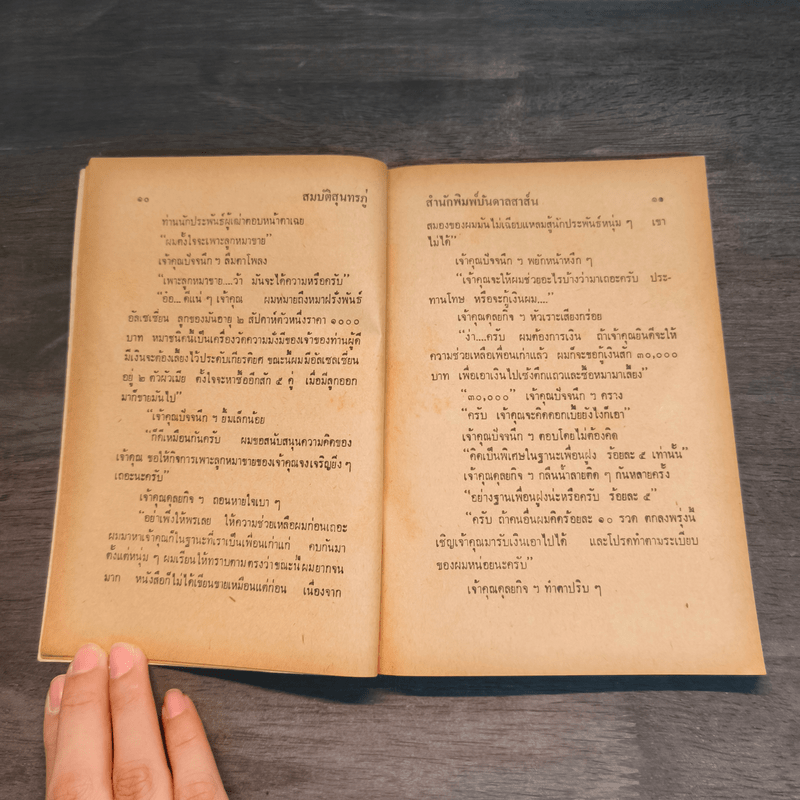 ๑๐
สมบัติสุนทรภู่
ท่านนักประพันธ์ผู้เฒ่าตอบหน้าตาเฉย
“ผมตั้งใจจะเพาะลูกหมาขาย”
เจ้าคุณปัจจนึก ฯ ลืมตาโพลง
“เพาะลูกหมาขาย....ว้า มันจะได้ความหรือครับ”
“อ๋อ....ดีแน่ ๆ เจ้าคุณ ผมหมายถึงหมาฝรั่งพันธ์
อัลเซเชี่ยน ลูกของมันอายุ ๒ สัปดาห์ตัวหนึ่งราคา ๑๐๐๐
บาท หมาชนิดนี้เป็นเครื่องวัดความมั่งมีของเจ้าของท่านผู้ดี
มีเงินจะต้องเลี้ยงไว้ประดับเกียรติยศ ขณะนี้ผมมีอัลเซลเชี่ยน
อยู่ ๒ ตัวผัวเมีย ตั้งใจจะหาซื้ออีกสัก ๕ คู่ เมื่อมีลูกออก
มาก็ขายมันไป”
เจ้าคุณปัจจนึก ฯ ยิ้มเล็กน้อย
“ก็ดีเหมือนกันครับ ผมขอสนับสนุนความคิดของ
เจ้าคุณ ขอให้กิจการเพาะลูกหมาขายของเจ้าคุณจงเจริญยิ่ง ๆ
เถอะนะครับ”
เจ้าคุณดุลยกิจ ฯ ถอนหายใจเบา ๆ
“อย่าเพิ่งให้พรเลย ให้ความช่วยเหลือผมก่อนเถอะ
ผมมาหาเจ้าคุณก็ในฐานะที่เราเป็นเพื่อนเก่าแก่ คบกันมา
ตั้งแต่หนุ่ม ๆ ผมเรียนให้ทราบตามตรงว่าขณะนี้ผมยากจน
มาก หนังสือก็ไม่ได้เขียนขายเหมือนแต่ก่อน เนื่องจาก
สำนักพิมพ์บันดาลสาส์น
๑๑
สมองของผมมันไม่เฉียบแหลมสู้นักประพันธ์หนุ่ม ๆ เขา
ไม่ได้”
เจ้าคุณปัจจนึก ฯ พยักหน้าหงึก ๆ
“เจ้าคุณจะให้ผมช่วยอะไรบ้างว่ามาเถอะครับ ประ-
ทานโทษ หรือจะกู้เงินผม....”
เจ้าคุณดุลยกิจ ฯ หัวเราะเสียงกร่อย
“ง่า....ครับ ผมต้องการเงิน ถ้าเจ้าคุณยินดีจะให้
ความช่วยเหลือเพื่อนเก่าแล้ว ผมก็จะขอกู้เงินสัก ๓๐,๐๐๐
บาท เพื่อเอาเงินไปเซ้งตึกแถวและซื้อหมามาเลี้ยง”
“๓๐,๐๐๐” เจ้าคุณปัจจนึก ฯ คราง
“ครับ เจ้าคุณจะคิดดอกเบี้ยยังไงก็เอา”
เจ้าคุณปัจจนึก ฯ ตอบโดยไม่ต้องคิด
“คิดเป็นพิเศษในฐานะเพื่อนฝูง ร้อยละ ๕ เท่านั้น”
เจ้าคุณดุลยกิจ ฯ กลืนน้ำลายติด ๆ กันหลายครั้ง
“อย่างฐานเพื่อนฝูงนะหรือครับ ร้อยละ ๕”
“ครับ ถ้าคนอื่นผมคิดร้อยละ ๑๐ รวด ตกลงพรุ่งนี้
เชิญเจ้าคุณมารับเงินเอาไปได้ และโปรดทำตามระเบียบ
ของผมหน่อยนะครับ”
เจ้าคุณดุลยกิจ ฯ ทำตาปริบ ๆ